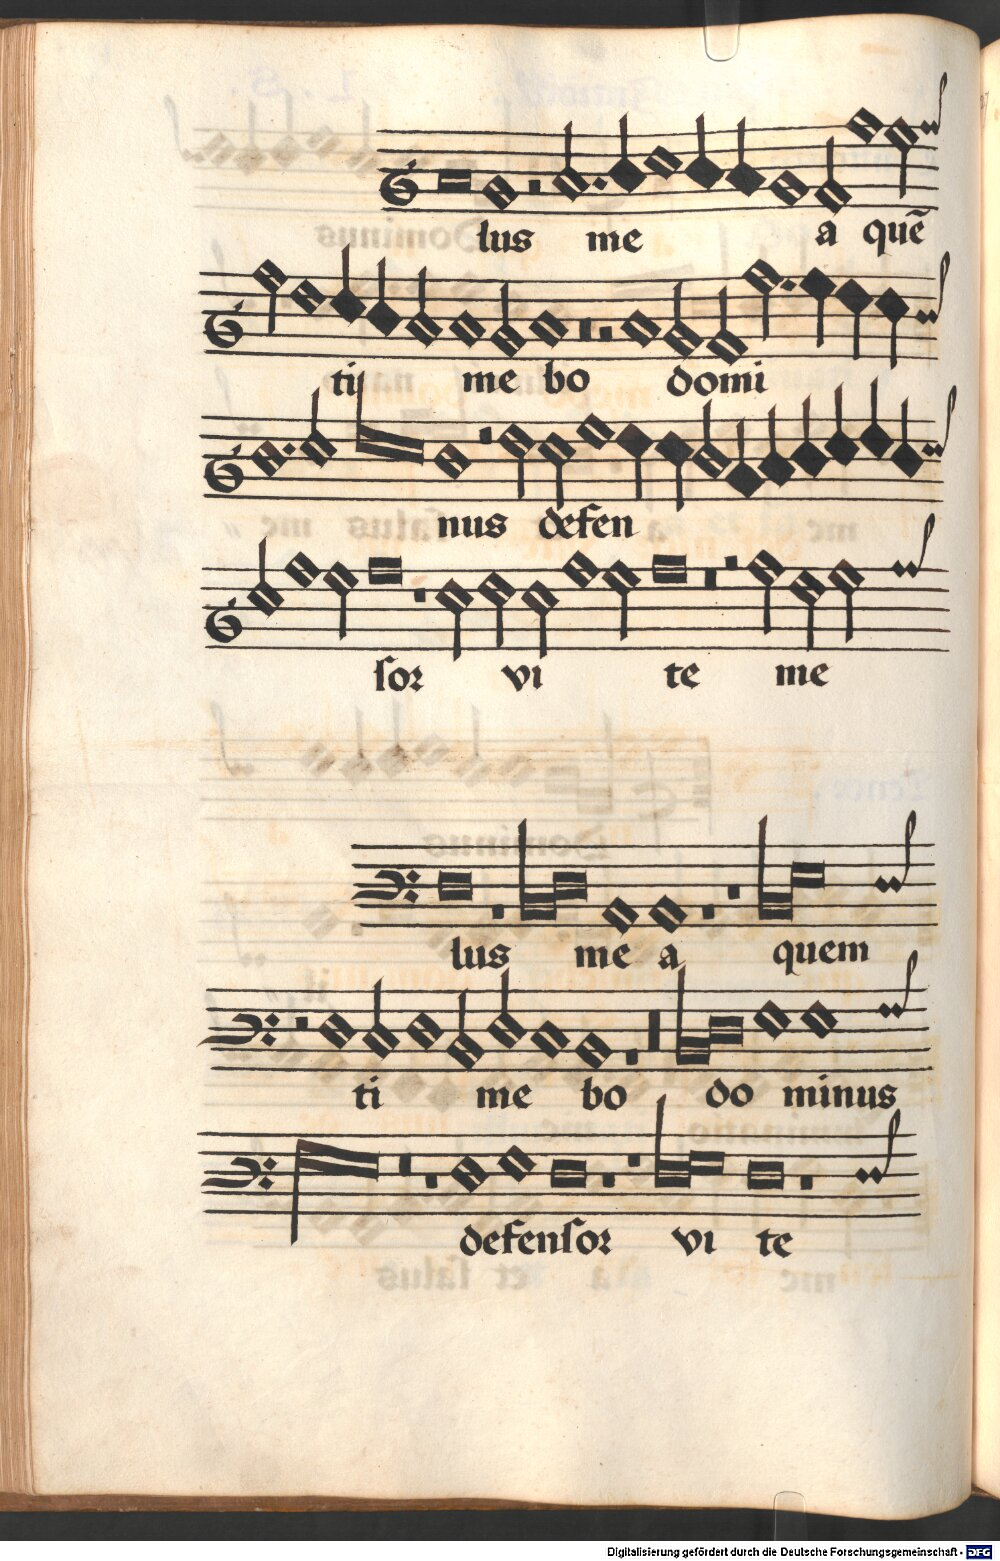 lus me a quē
ti me bo domi
nus defen
sor vi te me
lus me a quem
ti me bo do minus
defensor vi te
Digitalisierung gefördert durch die Deutsche Forschungsgemeinschaft - DFG